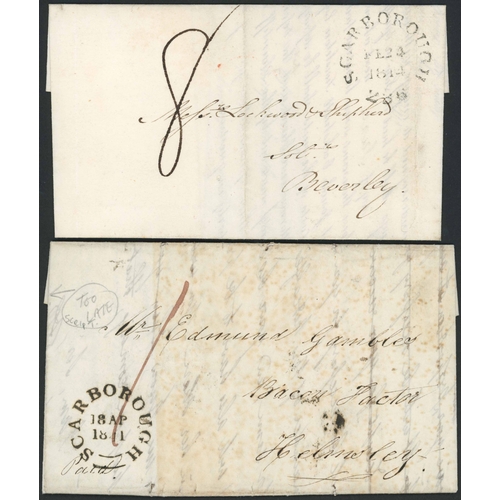 8
SCARBOROUGH
FE 24
1814
236
Messrs Lockwood & Shepherd
Solrs
Beverley.
TOO
LATE
1
Mr Edmund Gambley
Bacon Factor
Helmsley
SCARBOROUGH
18 AP
1841
Paid